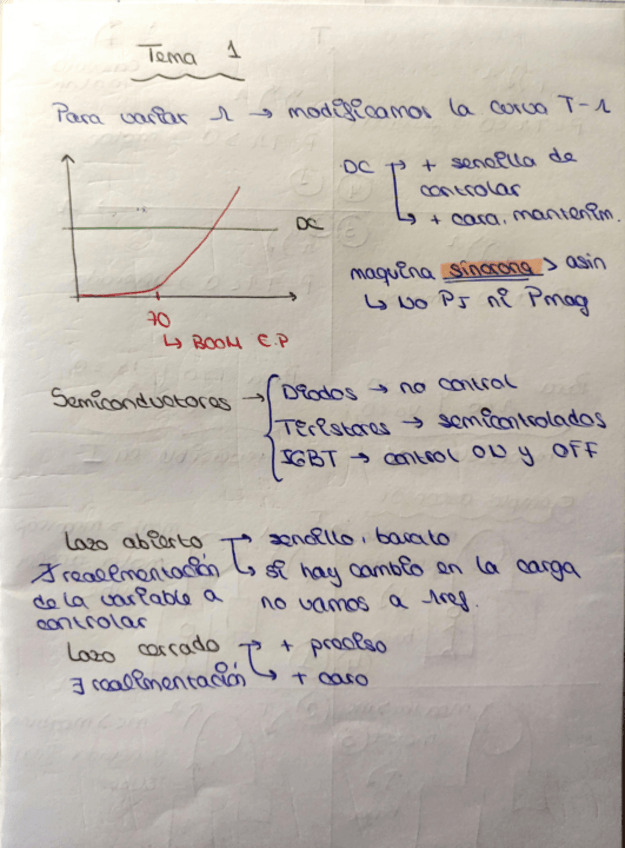 Tema 1
Para variar Ω → modificamos la curva T-Ω
DC → + sencilla de
controlar
↳ + cara, mantenim.
DC
maquina síncrona > asin
↳ No PJ ni Pmag
70
↳ BOOM E.P
Semiconductores → { Diodos → no control
Tiristores → semicontrolados
IGBT → control ON y OFF
Lazo abierto → sencillo, barato
∄ realimentación ↳ si hay cambio en la carga
de la variable a no vamos a Ωref.
controlar
Lazo cerrado → + preciso
∃ realimentación ↳ + caro